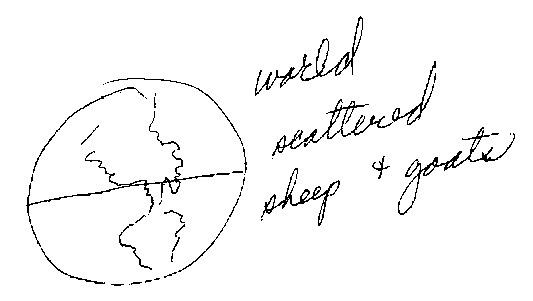 world
scattered
sheep + goats